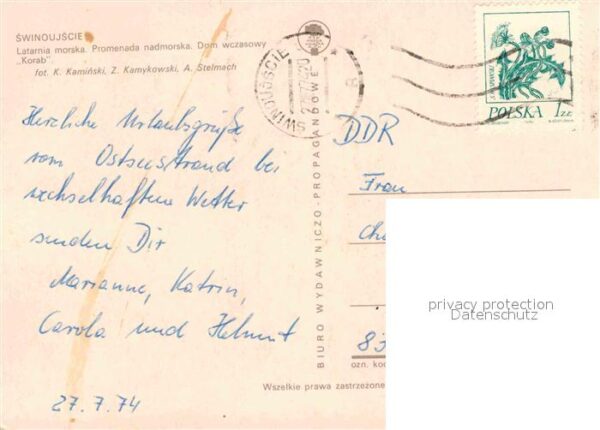 ŚWINOUJŚCIE
Latarnia morska. Promenada nadmorska. Dom wczasowy
„Korab”
fot. K. Kamiński, Z. Kamykowski, A. Stelmach
Herzliche Urlaubsgrüße
vom Ostseestrand bei
wechselhaftem Wetter
senden Dir
Marianne, Katrin,
Carola und Helmut
27.7.74
BIURO WYDAWNICZO-PROPAGANDOWE
ŚWINOUJŚCIE
POLSKA 1 ZŁ
DDR
Frau
83
ozn. ko
Wszelkie prawa zastrzeżone
privacy protection
Datenschutz